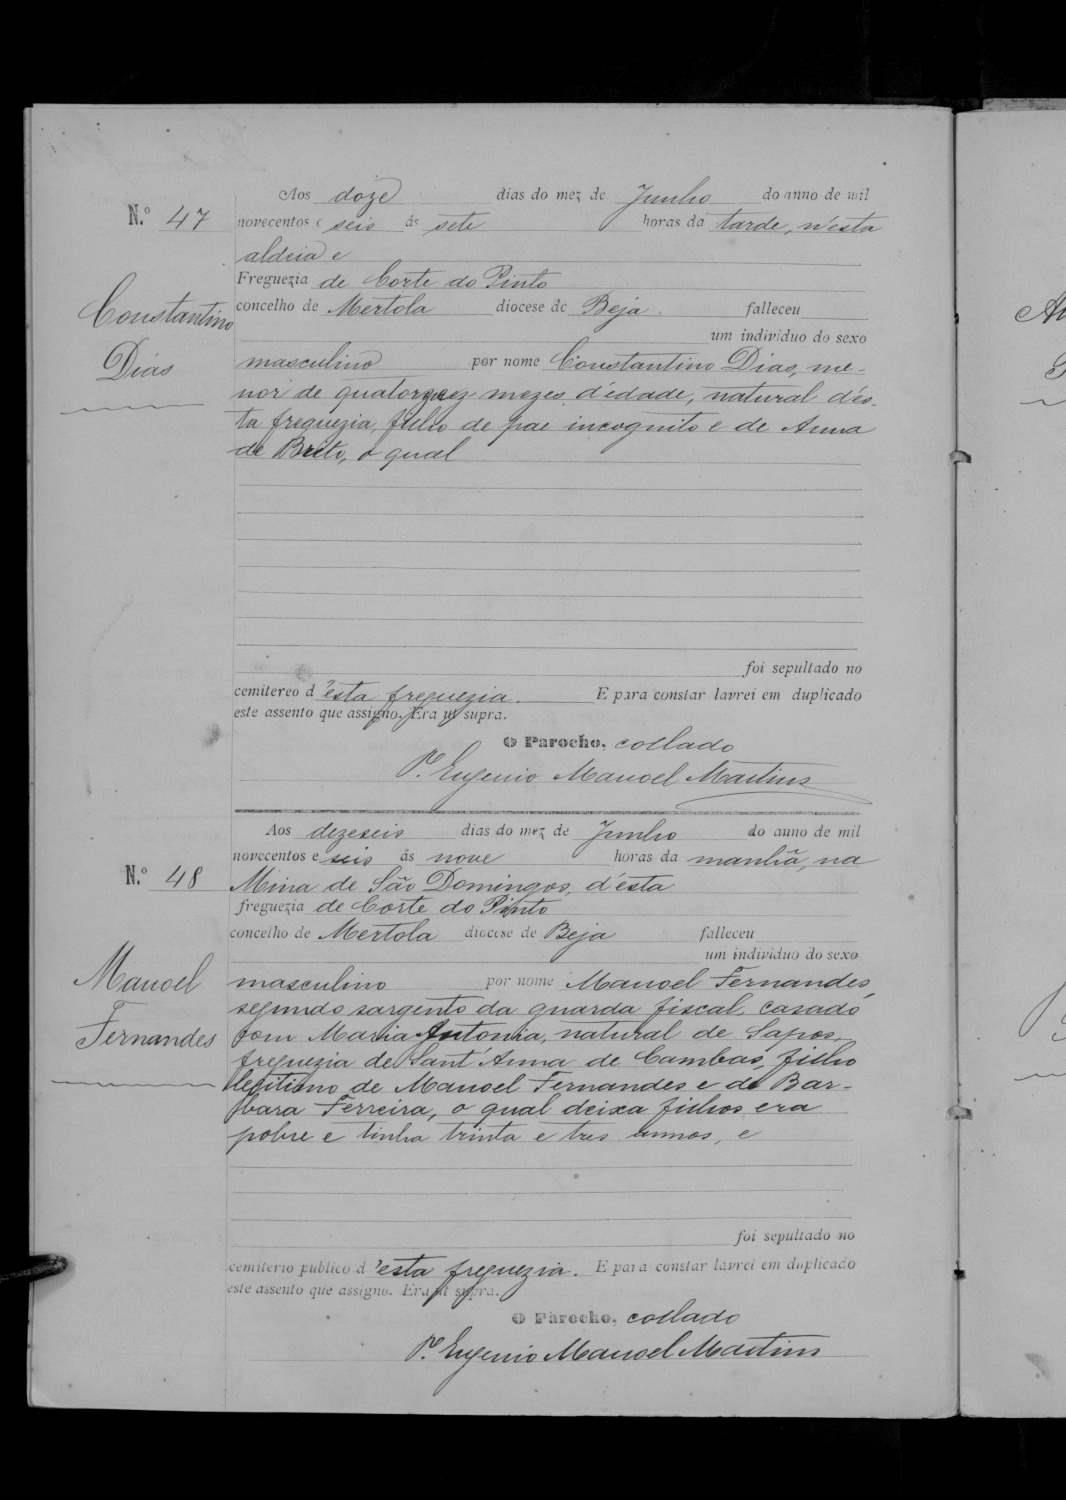 Aos doze dias do mez de Junho do anno de mil
N.º 47
novecentos e seis ás sete horas da tarde, n'esta
aldeia e
Freguezia de Corte do Pinto
concelho de Mertola diocese de Beja falleceu
um individuo do sexo
Constantino
Dias
masculino por nome Constantino Dias, me-
nor de quatorze mezes d'edade, natural d'es-
ta freguezia, filho de pae incognito e de Anna
de Brito, o qual
foi sepultado no
cemitereo d'esta freguezia. E para constar lavrei em duplicado
este assento que assigno. Era ut supra.
O Parocho, collado
P.e Eugenio Manoel Martins
Aos dezeseis dias do mez de Junho do anno de mil
novecentos e seis ás nove horas da manhã, na
N.º 48
Mina de São Domingos, d'esta
freguezia de Corte do Pinto
concelho de Mertola diocese de Beja falleceu
um individuo do sexo
Manoel
Fernandes
masculino por nome Manoel Fernandes,
segundo sargento da guarda fiscal, casado
com Maria Antonia, natural de Sapos,
freguezia de Sant'Anna de Cambas, filho
legitimo de Manoel Fernandes e de Bar-
bara Ferreira, o qual deixa filhos era
pobre e tinha trinta e tres annos, e
foi sepultado no
cemiterio publico d'esta freguezia. E para constar lavrei em duplicado
este assento que assigno. Era ut supra.
O Parocho, collado
P.e Eugenio Manoel Martins